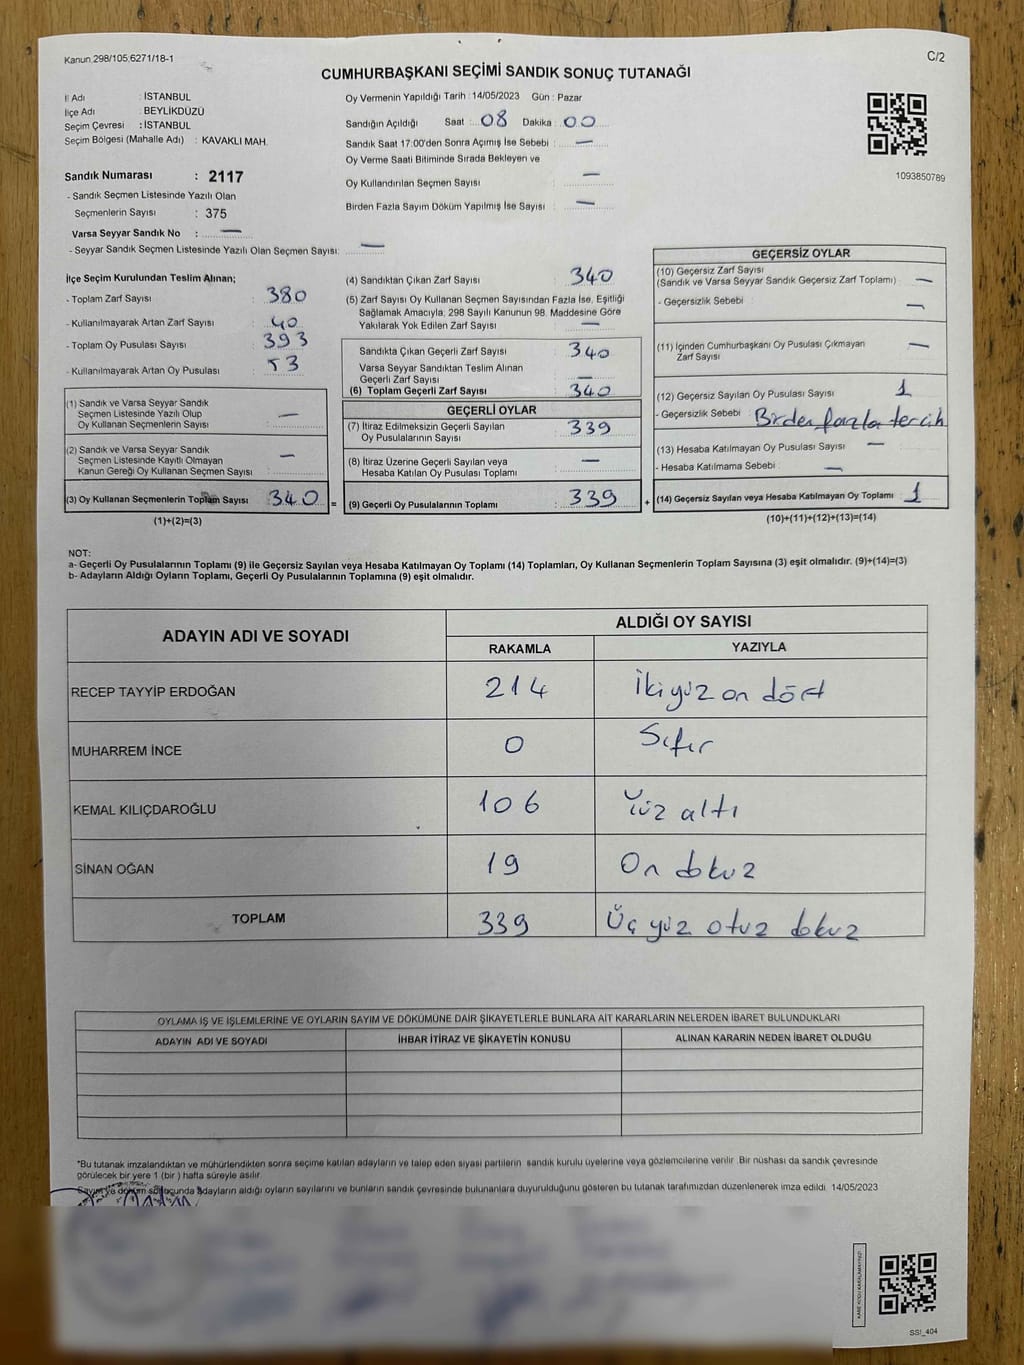 Kanun 298/105,6271/18-1
C/2
CUMHURBAŞKANI SEÇİMİ SANDIK SONUÇ TUTANAĞI
İl Adı : İSTANBUL
İlçe Adı : BEYLİKDÜZÜ
Seçim Çevresi : İSTANBUL
Seçim Bölgesi (Mahalle Adı) : KAVAKLI MAH.
Oy Vermenin Yapıldığı Tarih : 14/05/2023 Gün : Pazar
Sandığın Açıldığı Saat : 08 Dakika : 00
Sandık Saat 17:00'den Sonra Açımış İse Sebebi : —
Oy Verme Saati Bitiminde Sırada Bekleyen ve
Oy Kullandırılan Seçmen Sayısı : —
Birden Fazla Sayım Döküm Yapılmış İse Sayısı : —
1093850789
Sandık Numarası : 2117
- Sandık Seçmen Listesinde Yazılı Olan
Seçmenlerin Sayısı : 375
Varsa Seyyar Sandık No : —
- Seyyar Sandık Seçmen Listesinde Yazılı Olan Seçmen Sayısı: —
İlçe Seçim Kurulundan Teslim Alınan;
- Toplam Zarf Sayısı : 380
- Kullanılmayarak Artan Zarf Sayısı : 40
- Toplam Oy Pusulası Sayısı : 393
- Kullanılmayarak Artan Oy Pusulası : 53
(1) Sandık ve Varsa Seyyar Sandık
Seçmen Listesinde Yazılı Olup
Oy Kullanan Seçmenlerin Sayısı : —
(2) Sandık ve Varsa Seyyar Sandık
Seçmen Listesinde Kayıtlı Olmayan
Kanun Gereği Oy Kullanan Seçmen Sayısı : —
(3) Oy Kullanan Seçmenlerin Toplam Sayısı : 340 =
(1)+(2)=(3)
(4) Sandıktan Çıkan Zarf Sayısı : 340
(5) Zarf Sayısı Oy Kullanan Seçmen Sayısından Fazla İse, Eşitliği
Sağlamak Amacıyla; 298 Sayılı Kanunun 98. Maddesine Göre
Yakılarak Yok Edilen Zarf Sayısı : —
Sandıkta Çıkan Geçerli Zarf Sayısı : 340
Varsa Seyyar Sandıktan Teslim Alınan
Geçerli Zarf Sayısı : —
(6) Toplam Geçerli Zarf Sayısı : 340
GEÇERLİ OYLAR
(7) İtiraz Edilmeksizin Geçerli Sayılan
Oy Pusulalarının Sayısı : 339
(8) İtiraz Üzerine Geçerli Sayılan veya
Hesaba Katılan Oy Pusulası Toplamı : —
(9) Geçerli Oy Pusulalarının Toplamı : 339 +
GEÇERSİZ OYLAR
(10) Geçersiz Zarf Sayısı
(Sandık ve Varsa Seyyar Sandık Geçersiz Zarf Toplamı) : —
- Geçersizlik Sebebi : —
(11) İçinden Cumhurbaşkanı Oy Pusulası Çıkmayan
Zarf Sayısı : —
(12) Geçersiz Sayılan Oy Pusulası Sayısı : 1
- Geçersizlik Sebebi : Birden fazla tercih
(13) Hesaba Katılmayan Oy Pusulası Sayısı : —
- Hesaba Katılmama Sebebi : —
(14) Geçersiz Sayılan veya Hesaba Katılmayan Oy Toplamı : 1
(10)+(11)+(12)+(13)=(14)
NOT:
a- Geçerli Oy Pusulalarının Toplamı (9) ile Geçersiz Sayılan veya Hesaba Katılmayan Oy Toplamı (14) Toplamları, Oy Kullanan Seçmenlerin Toplam Sayısına (3) eşit olmalıdır. (9)+(14)=(3)
b- Adayların Aldığı Oyların Toplamı, Geçerli Oy Pusulalarının Toplamına (9) eşit olmalıdır.
ADAYIN ADI VE SOYADI
ALDIĞI OY SAYISI
RAKAMLA YAZIYLA
RECEP TAYYİP ERDOĞAN 214 İki yüz on dört
MUHARREM İNCE 0 Sıfır
KEMAL KILIÇDAROĞLU 106 Yüz altı
SİNAN OĞAN 19 On dokuz
TOPLAM 339 Üç yüz otuz dokuz
OYLAMA İŞ VE İŞLEMLERİNE VE OYLARIN SAYIM VE DÖKÜMÜNE DAİR ŞİKAYETLERLE BUNLARA AİT KARARLARIN NELERDEN İBARET BULUNDUKLARI
ADAYIN ADI VE SOYADI İHBAR İTİRAZ VE ŞİKAYETİN KONUSU ALINAN KARARIN NEDEN İBARET OLDUĞU
*Bu tutanak imzalandıktan ve mühürlendikten sonra seçime katılan adayların ve talep eden siyasi partilerin sandık kurulu üyelerine veya gözlemcilerine verilir. Bir nüshası da sandık çevresinde
görülecek bir yere 1 (bir ) hafta süreyle asılır.
Sayım ve döküm sonucunda adayların aldığı oyların sayılarını ve bunların sandık çevresinde bulunanlara duyurulduğunu gösteren bu tutanak tarafımızdan düzenlenerek imza edildi. 14/05/2023
SSI_404